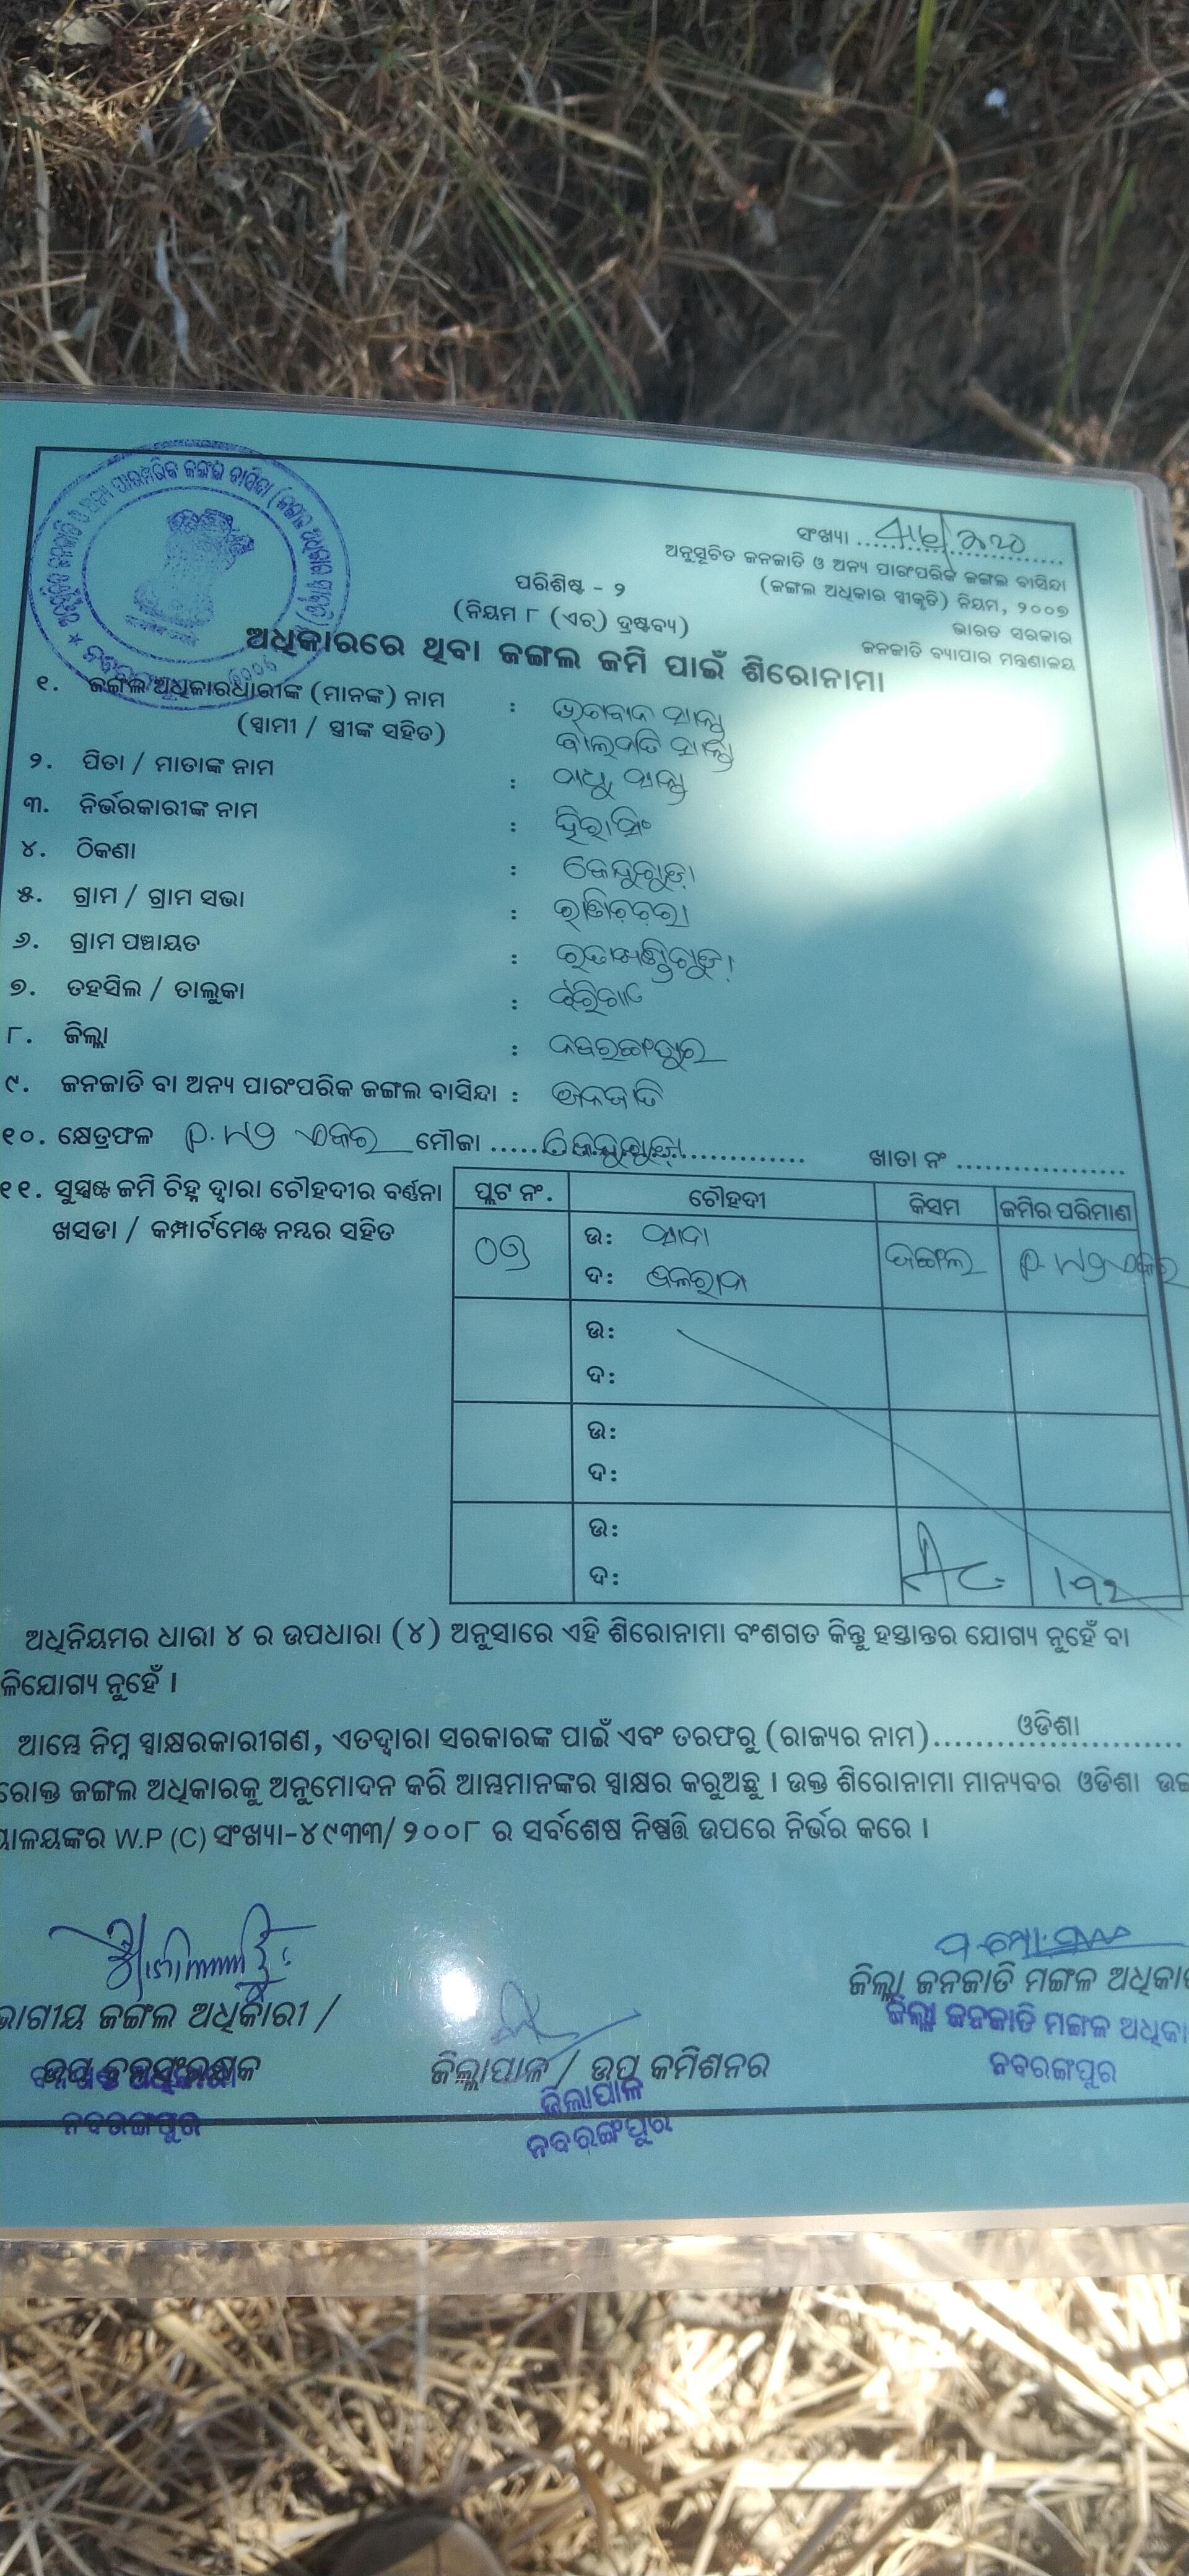 ସଂଖ୍ୟା
ଅନୁସୂଚିତ ଜନଜାତି ଓ ଅନ୍ୟ ପାରଂପରିକ ଜଙ୍ଗଲ ବାସିନ୍ଦା
(ଜଙ୍ଗଲ ଅଧିକାର ସ୍ୱୀକୃତି) ନିୟମ, ୨୦୦୭
ଭାରତ ସରକାର
ଜନଜାତି ବ୍ୟାପାର ମନ୍ତ୍ରଣାଳୟ
ପରିଶିଷ୍ଟ - ୨
(ନିୟମ ୮ (ଏଚ୍) ଦ୍ରଷ୍ଟବ୍ୟ)
ଅଧିକାରରେ ଥିବା ଜଙ୍ଗଲ ଜମି ପାଇଁ ଶିରୋନାମା
୧. ଜଙ୍ଗଲ ଅଧିକାରଧାରୀଙ୍କ (ମାନଙ୍କ) ନାମ :
(ସ୍ୱାମୀ / ସ୍ତ୍ରୀଙ୍କ ସହିତ)
୨. ପିତା / ମାତାଙ୍କ ନାମ :
୩. ନିର୍ଭରକାରୀଙ୍କ ନାମ : ହିରାସିଂ
୪. ଠିକଣା : କେନ୍ଦୁଗୁଡ଼ା
୫. ଗ୍ରାମ / ଗ୍ରାମ ସଭା :
୬. ଗ୍ରାମ ପଞ୍ଚାୟତ :
୭. ତହସିଲ / ତାଲୁକା : ଝରିଗାଁ
୮. ଜିଲ୍ଲା : ନବରଙ୍ଗପୁର
୯. ଜନଜାତି ବା ଅନ୍ୟ ପାରଂପରିକ ଜଙ୍ଗଲ ବାସିନ୍ଦା : ଜନଜାତି
୧୦. କ୍ଷେତ୍ରଫଳ ଏକର ମୌଜା କେନ୍ଦୁଗୁଡ଼ା ଖାତା ନଂ
୧୧. ସୁସ୍ପଷ୍ଟ ଜମି ଚିହ୍ନ ଦ୍ୱାରା ଚୌହଦୀର ବର୍ଣ୍ଣନା
ଖସଡା / କମ୍ପାର୍ଟମେଣ୍ଟ ନମ୍ବର ସହିତ
ପ୍ଲଟ ନଂ. ଚୌହଦୀ କିସମ ଜମିର ପରିମାଣ
ଉ: ଜଙ୍ଗଲ ଏକର
ଦ:
ଉ:
ଦ:
ଉ:
ଦ:
ଉ:
ଦ:
ଅଧିନିୟମର ଧାରା ୪ ର ଉପଧାରା (୪) ଅନୁସାରେ ଏହି ଶିରୋନାମା ବଂଶଗତ କିନ୍ତୁ ହସ୍ତାନ୍ତର ଯୋଗ୍ୟ ନୁହେଁ ବା
ଳିଯୋଗ୍ୟ ନୁହେଁ ।
ଆମ୍ଭେ ନିମ୍ନ ସ୍ୱାକ୍ଷରକାରୀଗଣ, ଏତଦ୍ୱାରା ସରକାରଙ୍କ ପାଇଁ ଏବଂ ତରଫରୁ (ରାଜ୍ୟର ନାମ) ଓଡିଶା
ରୋକ୍ତ ଜଙ୍ଗଲ ଅଧିକାରକୁ ଅନୁମୋଦନ କରି ଆମ୍ଭମାନଙ୍କର ସ୍ୱାକ୍ଷର କରୁଅଛୁ । ଉକ୍ତ ଶିରୋନାମା ମାନ୍ୟବର ଓଡିଶା ଉଚ୍ଚ
ୟାଳୟଙ୍କର W.P (C) ସଂଖ୍ୟା-୪୯୩୩/୨୦୦୮ ର ସର୍ବଶେଷ ନିଷ୍ପତ୍ତି ଉପରେ ନିର୍ଭର କରେ ।
ଭାଗୀୟ ଜଙ୍ଗଲ ଅଧିକାରୀ /
ଉପ ବନସଂରକ୍ଷକ
ନବରଙ୍ଗପୁର
ଜିଲ୍ଲାପାଳ / ଉପ କମିଶନର
ଜିଲ୍ଲାପାଳ
ନବରଙ୍ଗପୁର
ଜିଲ୍ଲା ଜନଜାତି ମଙ୍ଗଳ ଅଧିକା
ଜିଲ୍ଲା ଜନଜାତି ମଙ୍ଗଳ ଅଧିକା
ନବରଙ୍ଗପୁର